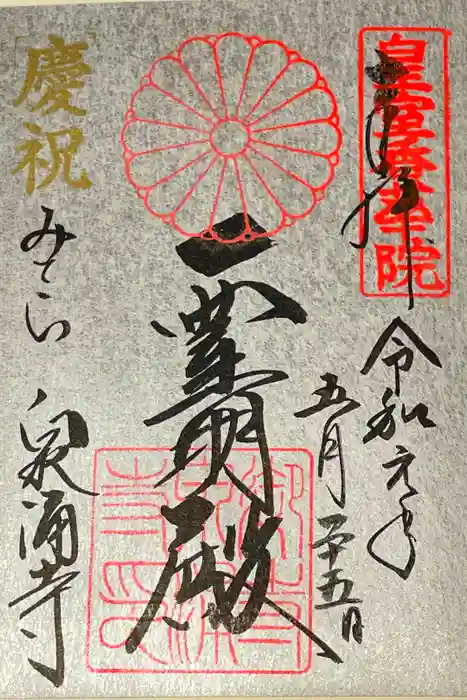 皇室香華院
奉拝
令和元年
五月二十五日
霊明殿
慶祝
みてら 泉涌寺